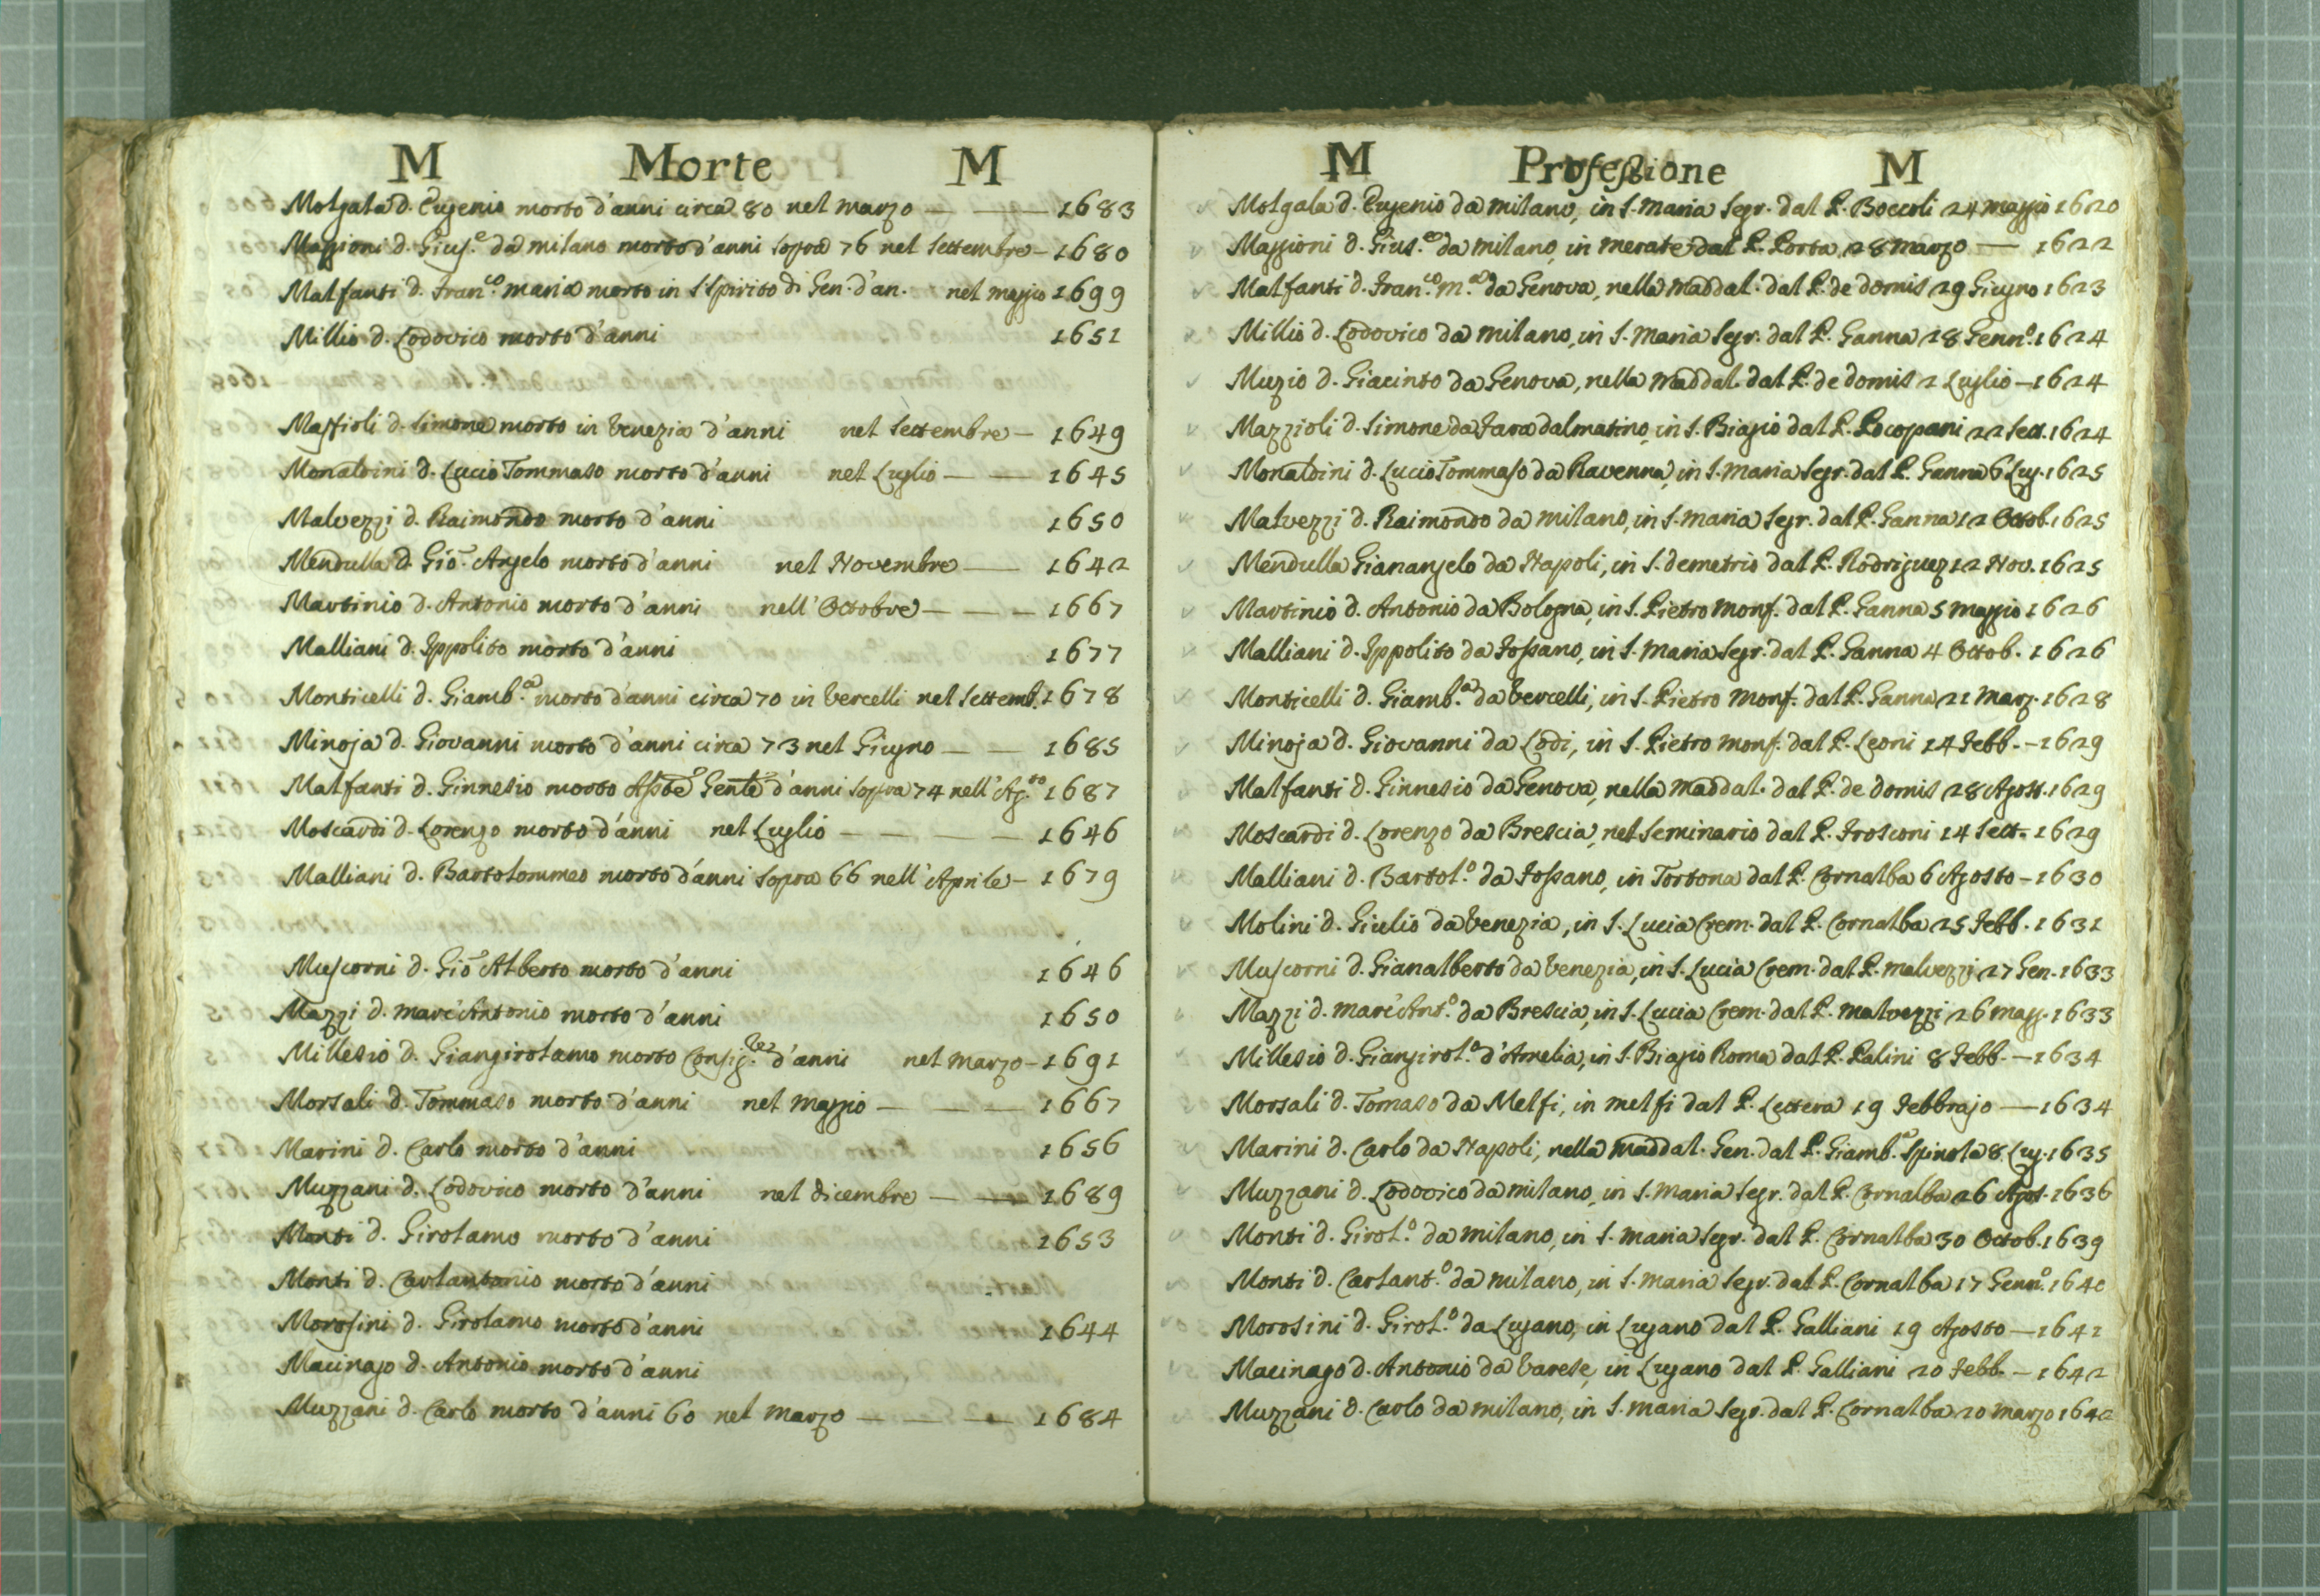 M Morte M
Molgala d. Eugenio morto d'anni circa 80 nel marzo — — 1683
Maggioni d. Gius.e da milano morto d'anni sopra 76 nel Settembre – 1680
Malfanti d. Fran.co maria morto in S. Spirito di Gen. d'an. nel maggio 1699
Millio d. Lodovico morto d'anni 1651
Massioli d. Simone morto in Venezia d'anni nel Settembre – 1649
Monaldini d. Lucio Tommaso morto d'anni nel Luglio — — 1645
Malvezzi d. Raimondo morto d'anni 1650
Mendulla d. Gio. Angelo morto d'anni nel Novembre — 1642
Martinio d. Antonio morto d'anni nell'Ottobre — — – 1667
Malliani d. Ippolito morto d'anni 1677
Monticelli d. Giamb.a morto d'anni circa 70 in Vercelli nel Settemb. 1678
Minoja d. Giovanni morto d'anni circa 73 nel Giugno — — 1685
Malfanti d. Ginnesio morto Asste Genle d'anni sopra 74 nell'Ag.to 1687
Moscardi d. Lorenzo morto d'anni nel Luglio — — — — 1646
Malliani d. Bartolommeo morto d'anni sopra 66 nell'Aprile – 1679
Muscorni d. Gio Alberto morto d'anni 1646
Mazzi d. marc'Antonio morto d'anni 1650
Millesio d. Giangirolamo morto Consig.re d'anni nel marzo – 1691
Morsali d. Tommaso morto d'anni nel maggio — — — 1667
Marini d. Carlo morto d'anni 1656
Muzzani d. Lodovico morto d'anni nel dicembre — — 1689
Monti d. Girolamo morto d'anni 1653
Monti d. Carlantonio morto d'anni
Morosini d. Girolamo morto d'anni 1644
Macinago d. Antonio morto d'anni
Muzzani d. Carlo morto d'anni 60 nel marzo — — — 1684
M Professione M
Molgala d. Eugenio da milano, in S. maria Segr. dal P. Boccoli 24 maggio 1620
Maggioni d. Gius.e da milano, in merate dal P. Porta, 28 marzo — 1622
Malfanti d. Fran.co m.a da Genova, nella maddal. dal P. de domis 29 Giugno 1623
Millio d. Lodovico da milano, in S. maria Segr. dal P. Ganna 28 Genn.o 1624
Muzio d. Giacinto da Genova, nella maddal. dal P. de domis 2 Luglio – 1624
Mazzioli d. Simone da Zara dalmatino, in S. Biagio dal P. Pocopani 22 Sett. 1624
Monaldini d. Lucio Tommaso da Ravenna, in S. maria Segr. dal P. Ganna 6 Lug. 1625
Malvezzi d. Raimondo da milano, in S. maria Segr. dal P. Ganna 12 Ottob. 1625
Mendulla Gianangelo da Napoli, in S. demetrio dal P. Rodriguez 12 Nov. 1625
Martinio d. Antonio da Bologna, in S. Pietro Monf. dal P. Ganna 5 maggio 1626
Malliani d. Ippolito da Fossano, in S. Maria Segr. dal P. Ganna 4 Ottob. 1626
Monticelli d. Giamb.a da Vercelli, in S. Pietro Monf. dal P. Ganna 21 Marz. 1628
Minoja d. Giovanni da Lodi, in S. Pietro Monf. dal P. Leoni 14 Febb. – 1629
Malfanti d. Ginnesio da Genova, nella maddal. dal P. de domis 28 Agost. 1629
Moscardi d. Lorenzo da Brescia, nel Seminario dal P. Frosconi 14 Sett. 1629
Malliani d. Bartol.o da Fossano, in Tortona dal P. Cornalba 6 Agosto – 1630
Molini d. Giulio da Venezia, in S. Lucia Crem. dal P. Cornalba 25 Febb. 1631
Muscorni d. Gianalberto da Venezia, in S. Lucia Crem. dal P. malvezzi 27 Gen. 1633
Mazzi d. marc'Ant.o da Brescia, in S. Lucia Crem. dal P. malvezzi 26 magg. 1633
Millesio d. Giangirol.o d'Amelia, in S. Biagio Roma dal P. Palini 8 Febb. – 1634
Morsali d. Tomaso da Melfi, in melfi dal P. Lettera 19 Febbrajo — 1634
Marini d. Carlo da Napoli, nella maddal. Gen. dal P. Giamb.a Spinola 8 Lug. 1635
Muzzani d. Lodovico da milano, in S. maria Segr. dal P. Cornalba 26 Agos. 1636
Monti d. Girol.o da milano, in S. maria Segr. dal P. Cornalba 30 Ottob. 1639
Monti d. Carlant.o da milano, in S. maria Segr. dal P. Cornalba 17 Genn.o 1640
Morosini d. Girol.o da Lugano, in Lugano dal P. Galliani 19 Agosto – 1641
Macinago d. Antonio da Varese, in Lugano dal P. Galliani 20 Febb. – 1642
Muzzani d. Carlo da milano, in S. maria Segr. dal P. Cornalba 20 marzo 1642